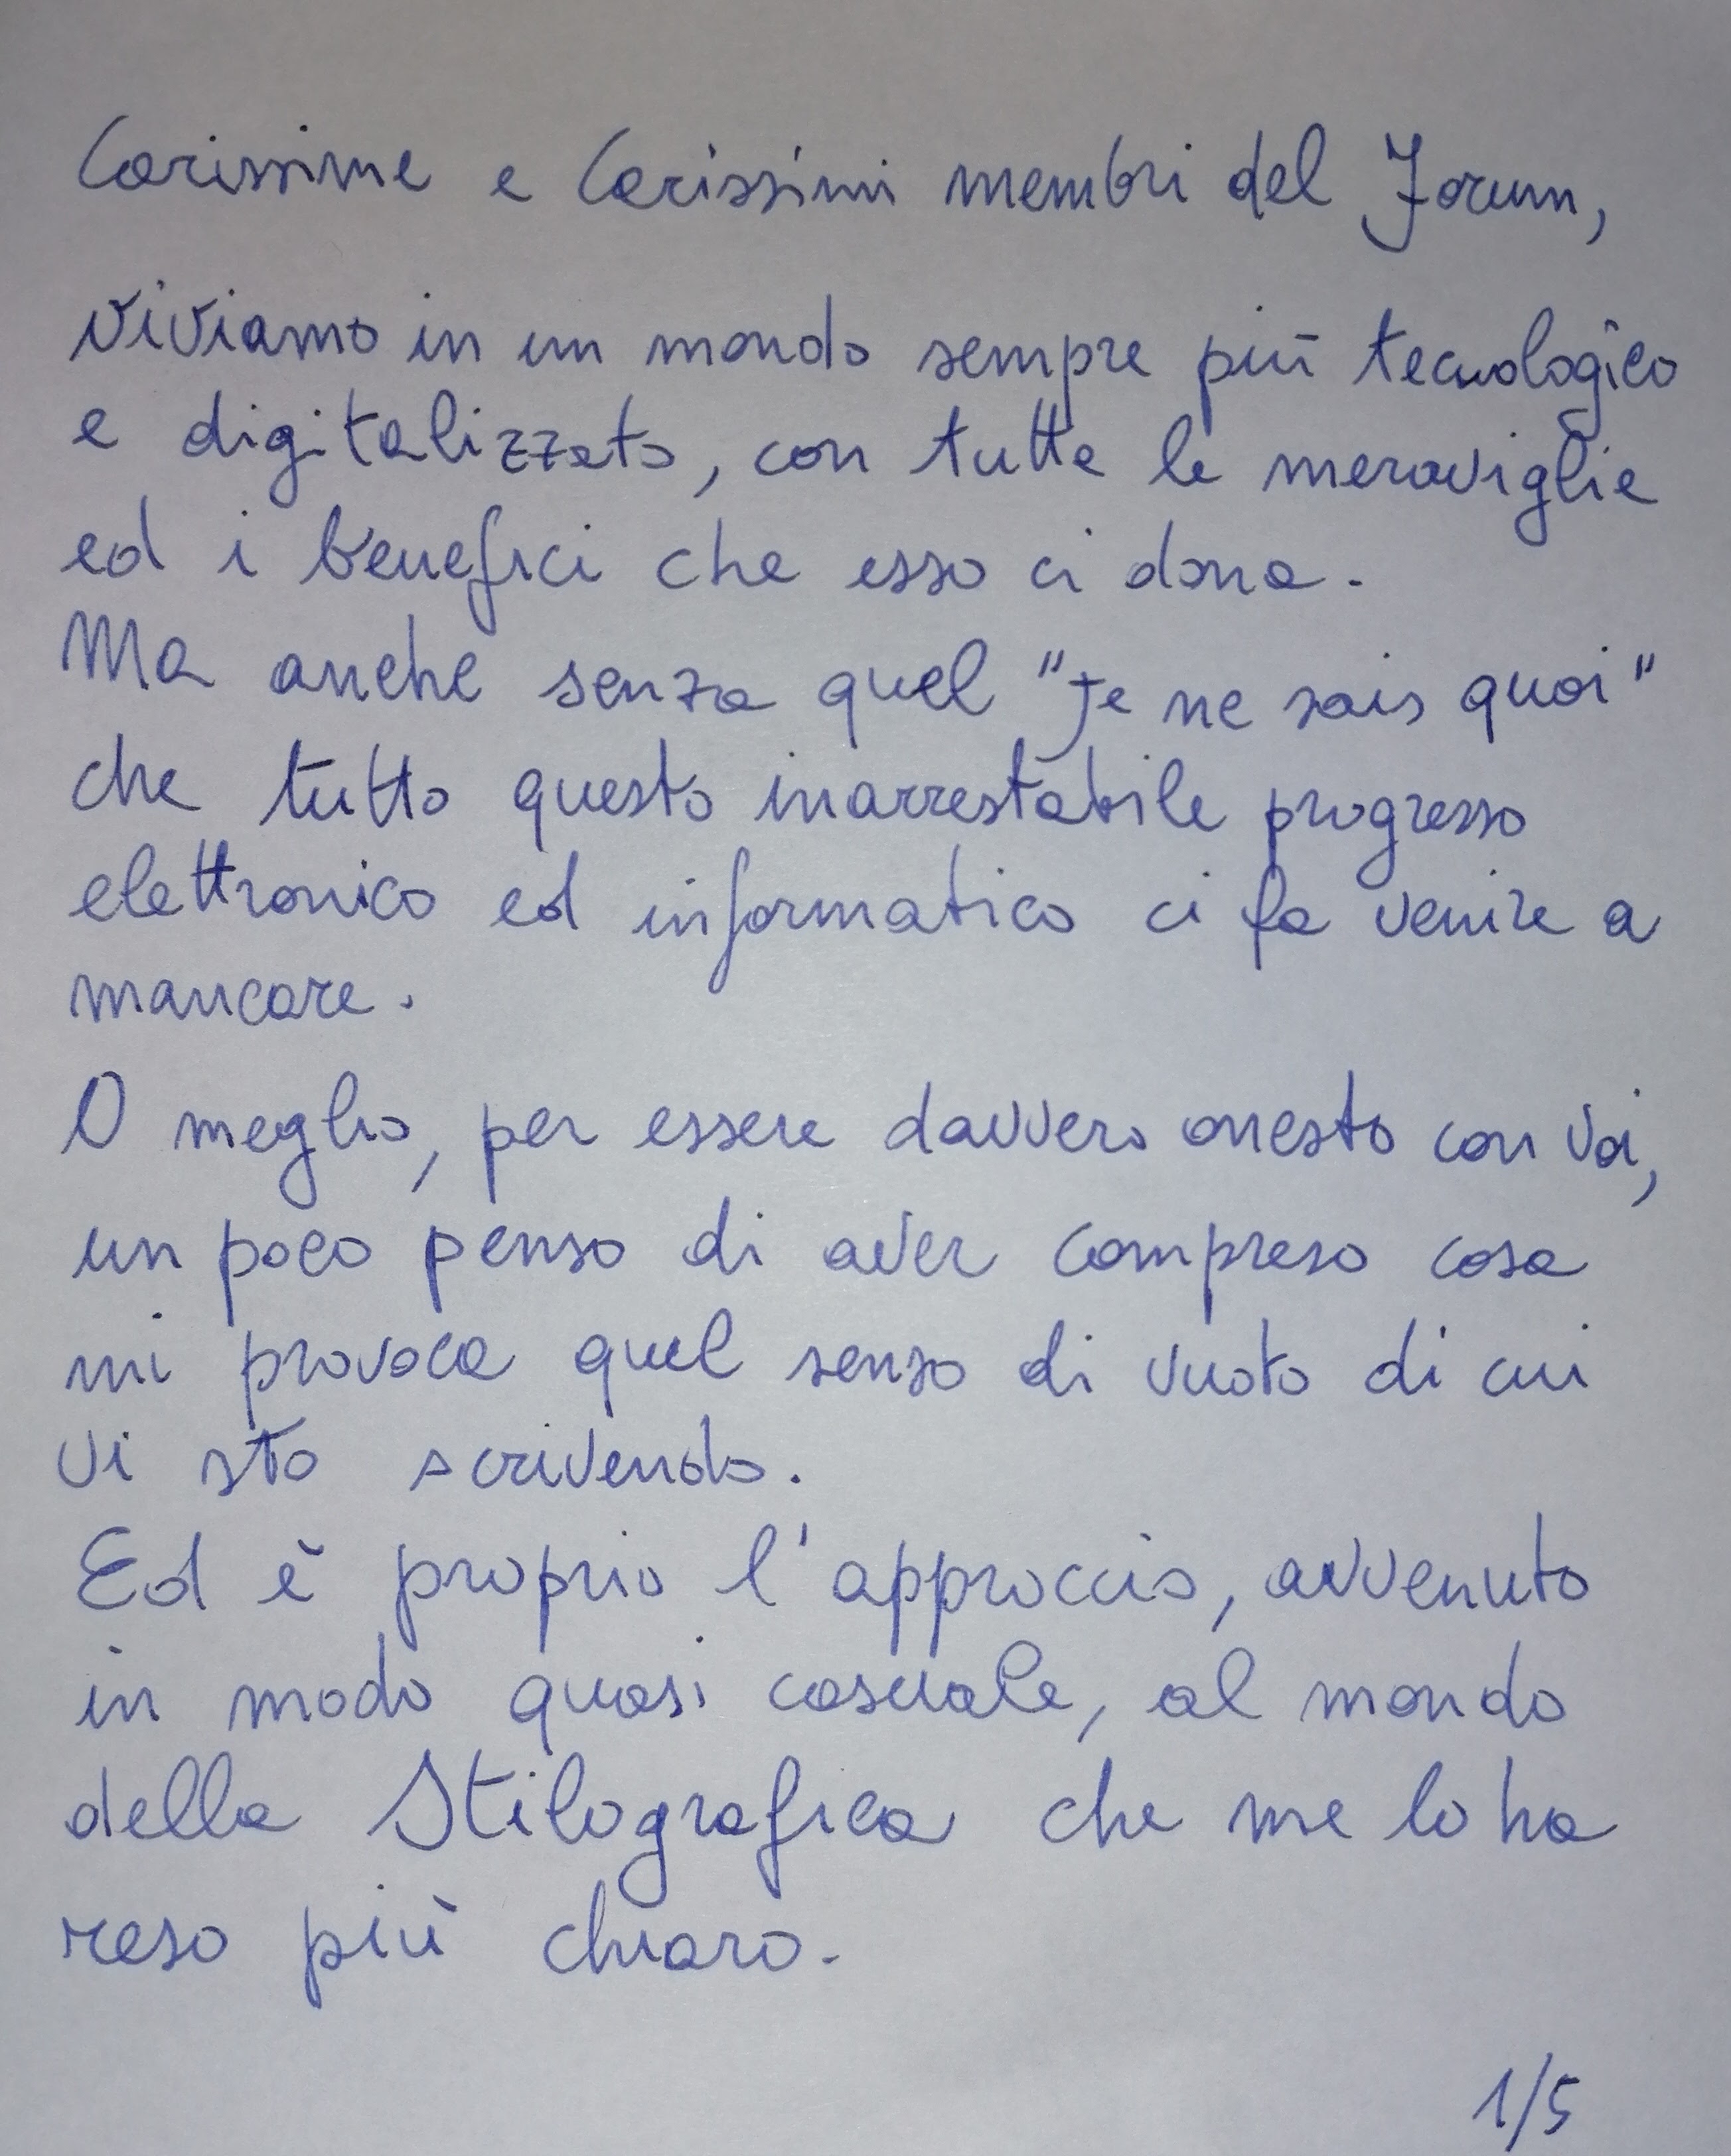 Carissime e Carissimi membri del Forum,
viviamo in un mondo sempre più tecnologico
e digitalizzato, con tutte le meraviglie
ed i benefici che esso ci dona.
Ma anche senza quel "je ne sais quoi"
che tutto questo inarrestabile progresso
elettronico ed informatico ci fa venire a
mancare.
O meglio, per essere davvero onesto con voi,
un poco penso di aver compreso cosa
mi provoca quel senso di vuoto di cui
vi sto scrivendo.
Ed è proprio l'approccio, avvenuto
in modo quasi casuale, al mondo
della Stilografica che me lo ha
reso più chiaro.
1/5